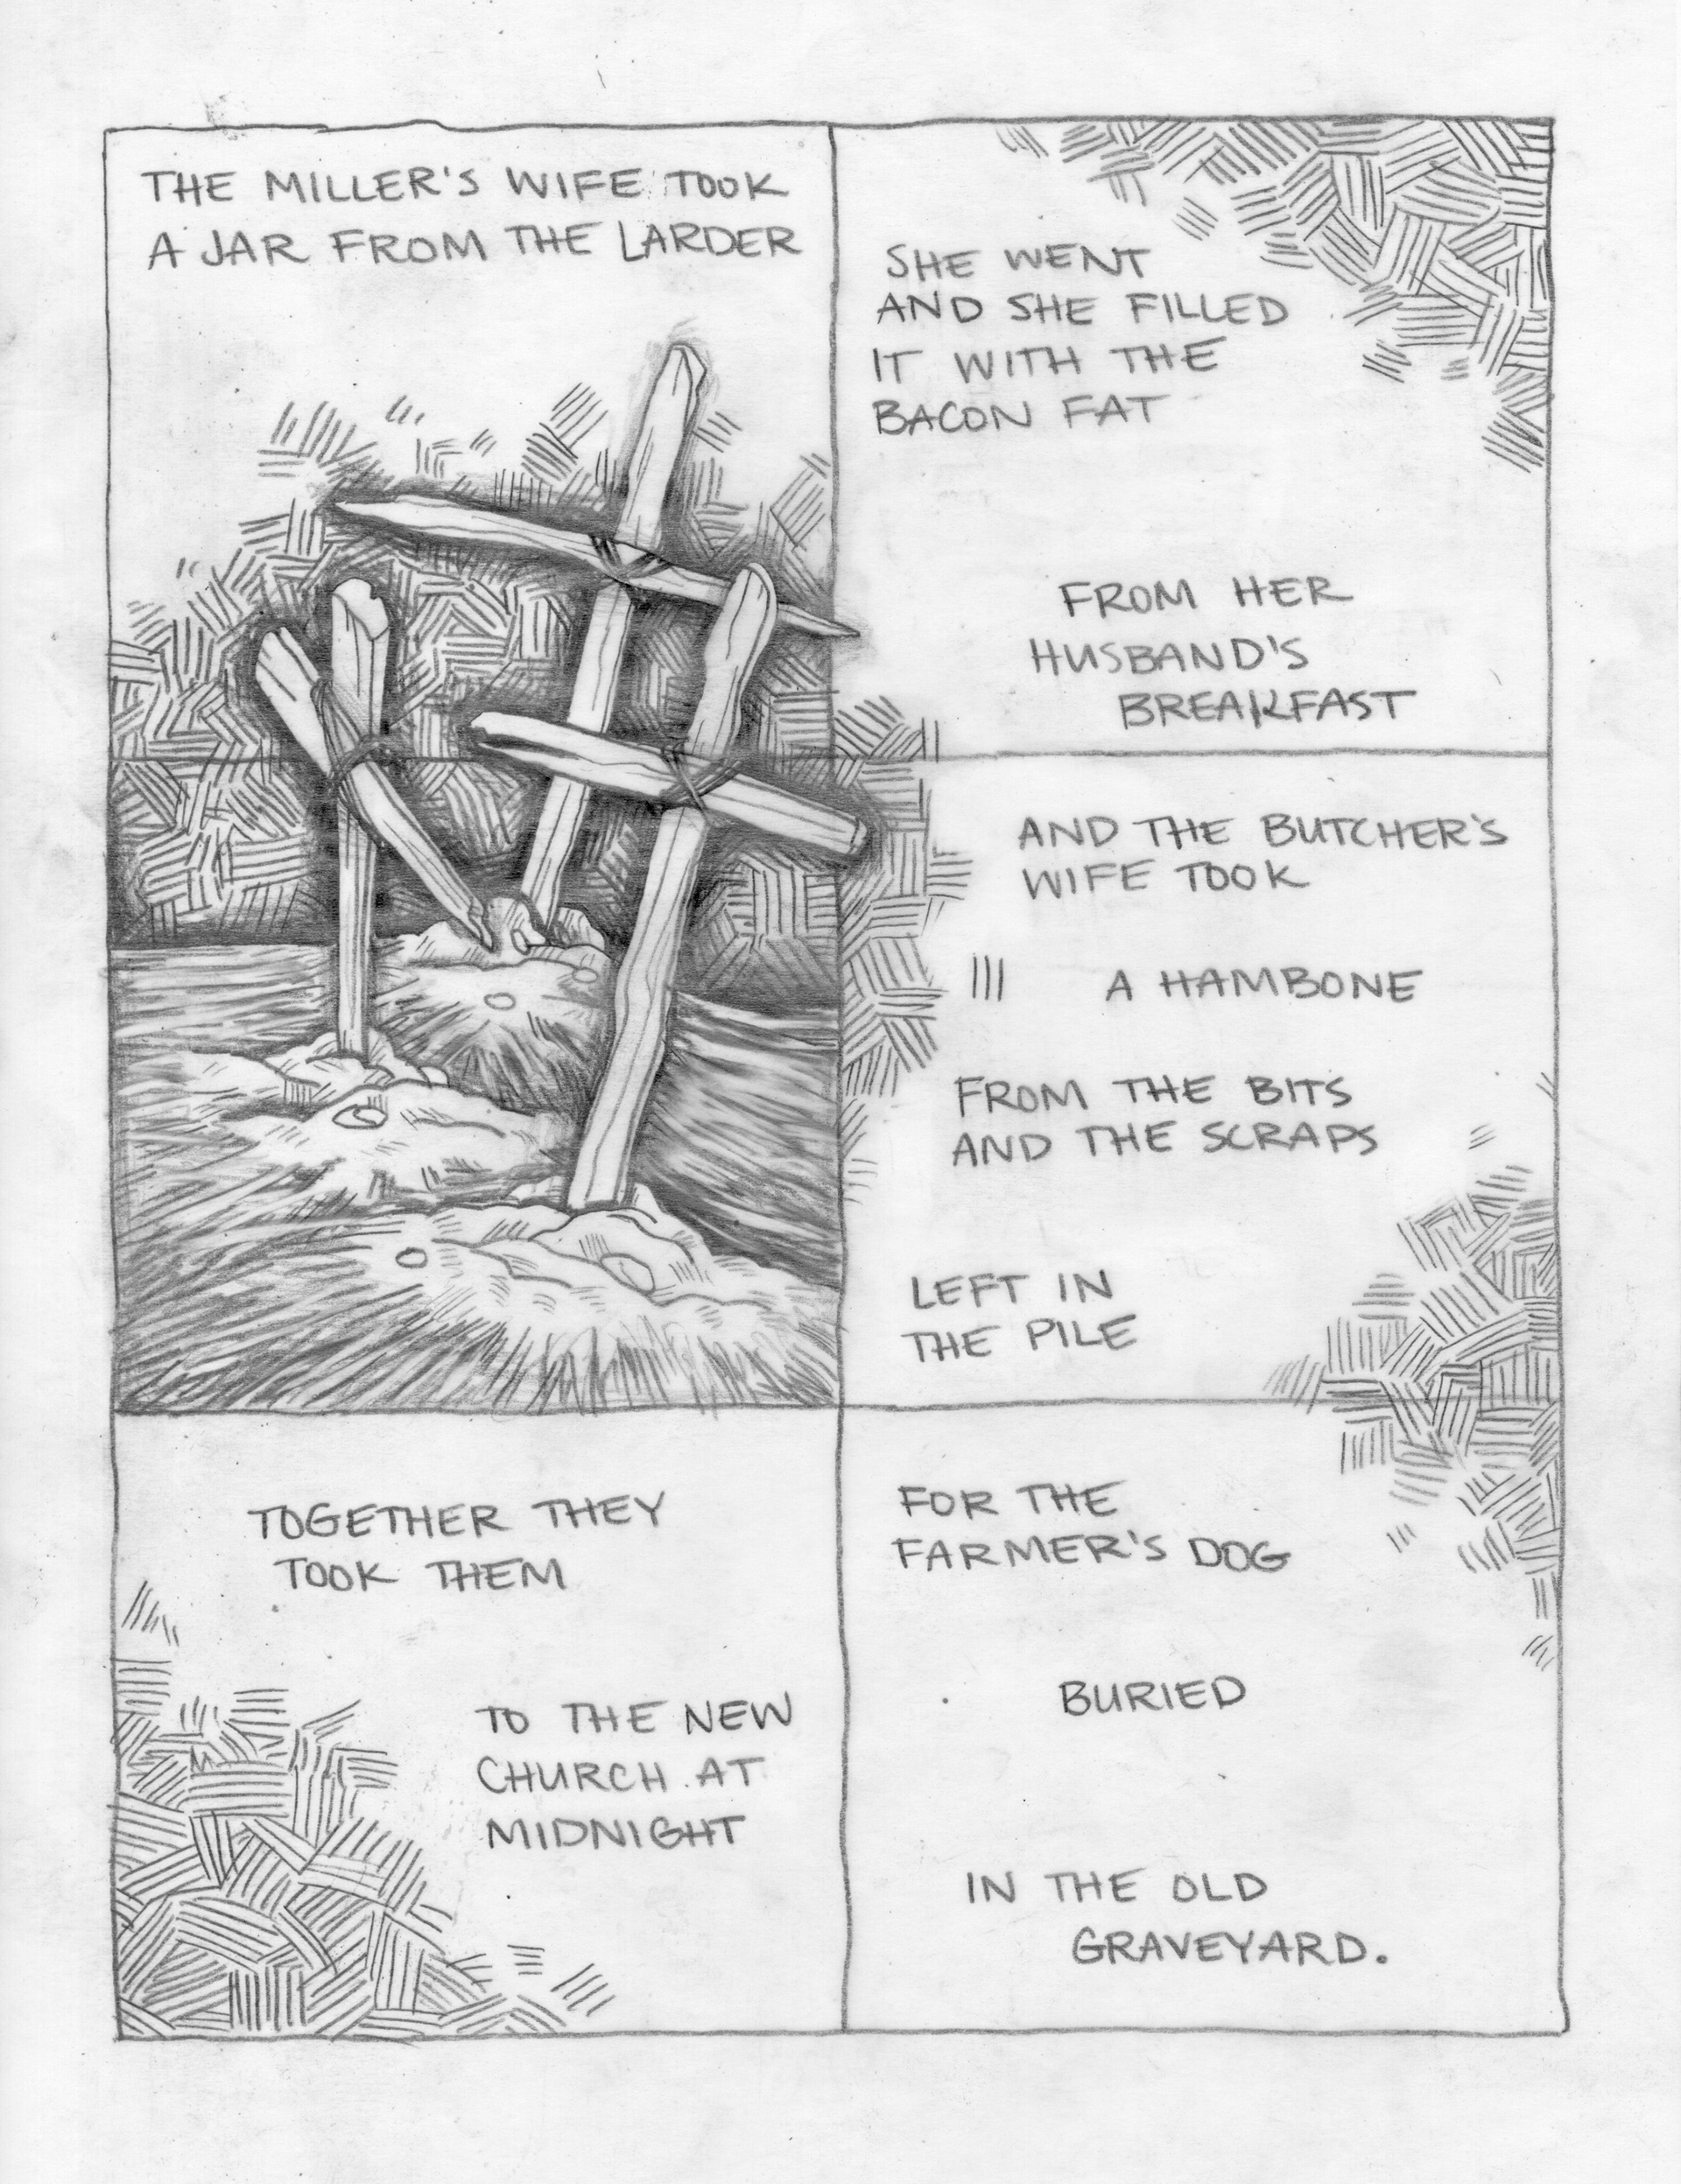 THE MILLER'S WIFE TOOK
A JAR FROM THE LARDER
SHE WENT
AND SHE FILLED
IT WITH THE
BACON FAT
FROM HER
HUSBAND'S
BREAKFAST
AND THE BUTCHER'S
WIFE TOOK
A HAMBONE
FROM THE BITS
AND THE SCRAPS
LEFT IN
THE PILE
TOGETHER THEY
TOOK THEM
TO THE NEW
CHURCH AT
MIDNIGHT
FOR THE
FARMER'S DOG
BURIED
IN THE OLD
GRAVEYARD.